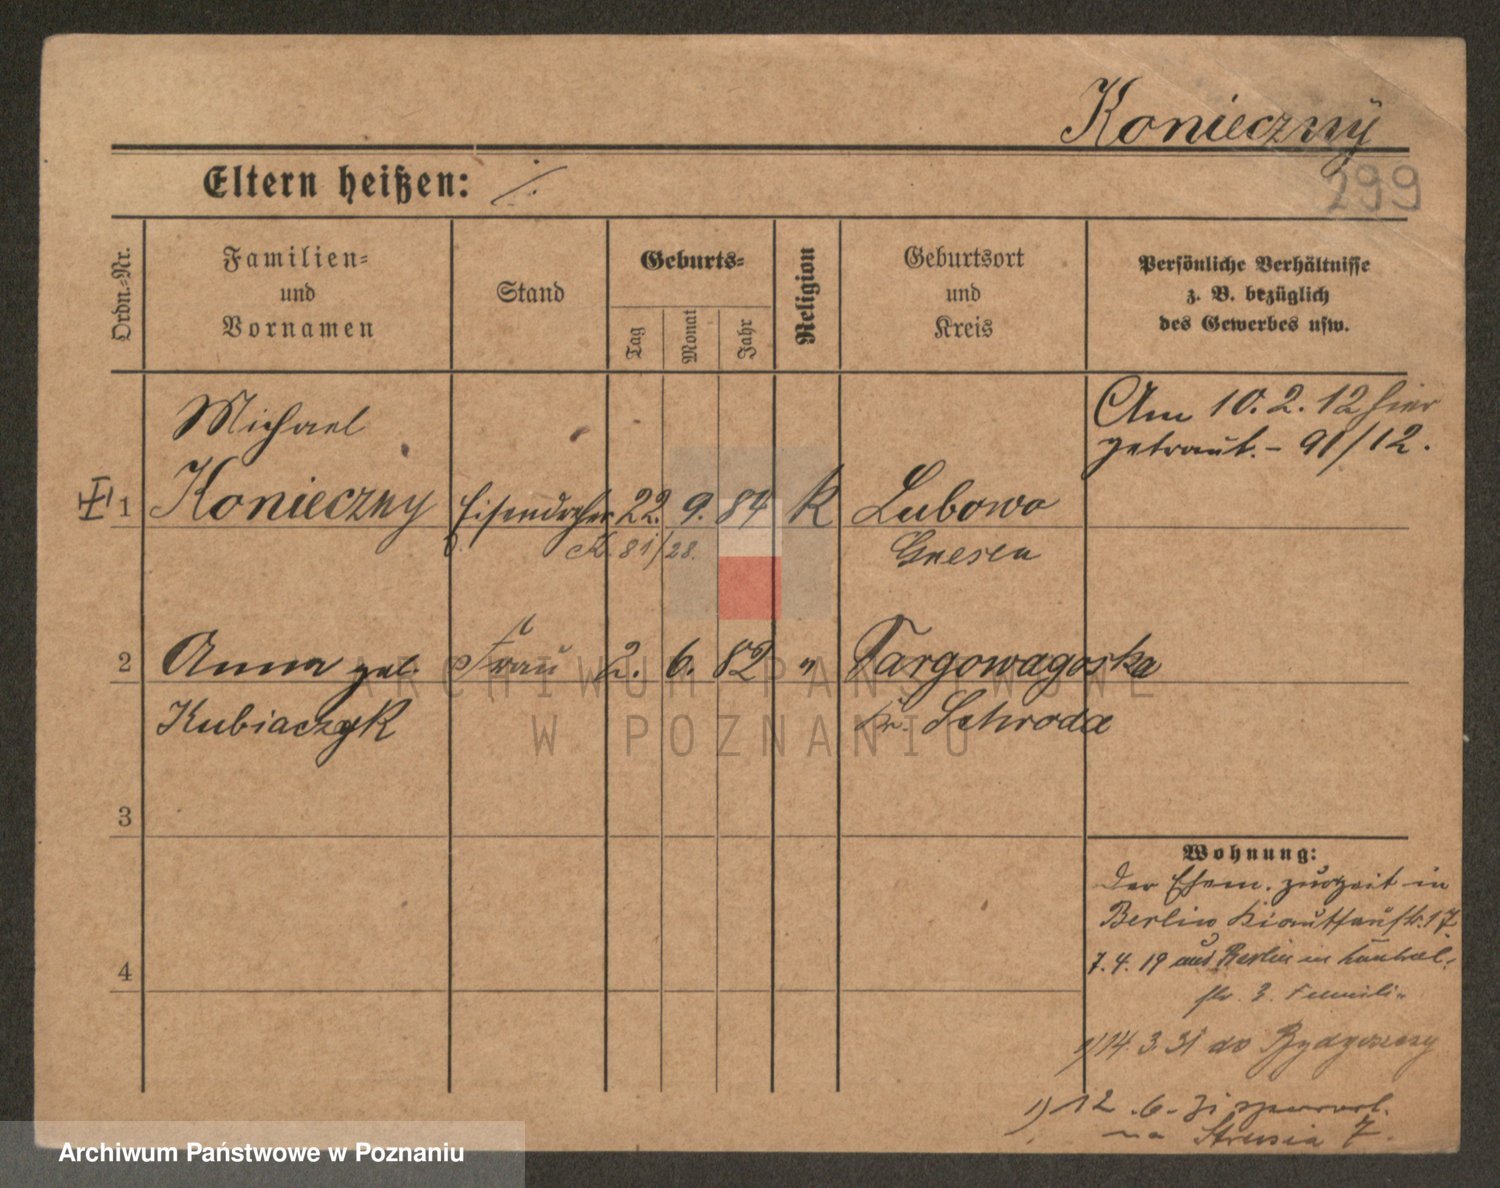 Konieczny
299
Eltern heißen: ./.
Ordn.-Nr.
Familien=
und
Vornamen
Stand
Geburts=
Tag
Monat
Jahr
Religion
Geburtsort
und
Kreis
Persönliche Verhältnisse
z. B. bezüglich
des Gewerbes usw.
Am 10.2.12 hier
getraut. – 91/12.
Michael
1 Konieczny Eisendreher 22. 9. 84 K Lubowo
K. 81/28. Gnesen
2 Anna geb. Frau 2. 6. 82 " Targowagorka
Kubiaczyk Kr. Schroda
3
4
Wohnung:
Der Ehem. zurzeit in
Berlin Kiautschaustr. 17
7.4.19 aus Berlin in
str. 3.
14.3.31 do Bydgoszczy
1) 12.6.31
na Strusia 7.
ARCHIWUM PAŃSTWOWE
W POZNANIU
Archiwum Państwowe w Poznaniu